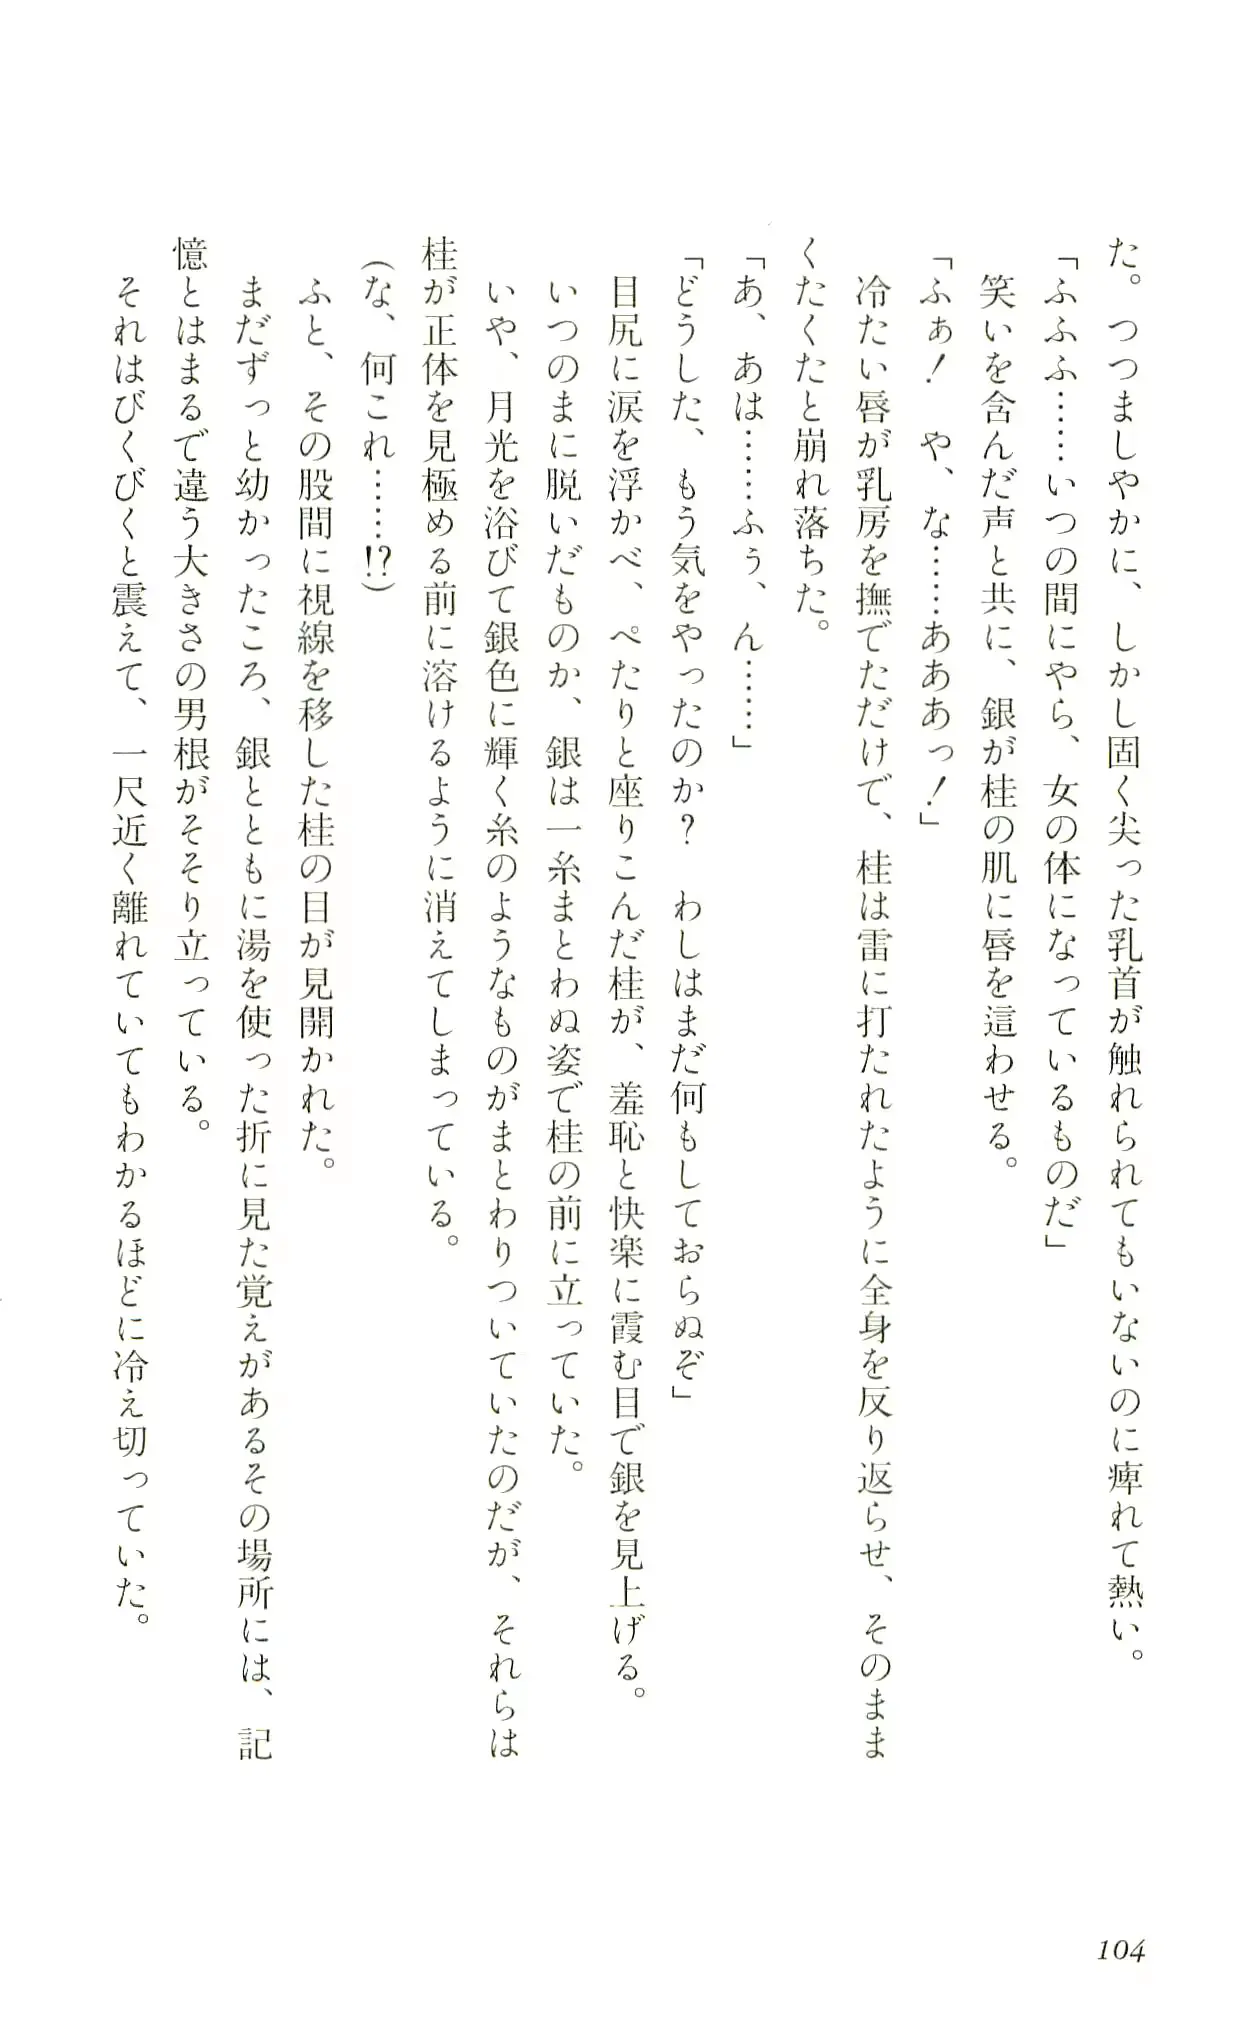 た。つつましやかに、しかし固く尖った乳首が触れられてもいないのに痺れて熱い。
「ふふふ……いつの間にやら、女の体になっているものだ」
笑いを含んだ声と共に、銀が桂の肌に唇を這わせる。
「ふぁ！　や、な……あああっ！」
冷たい唇が乳房を撫でただけで、桂は雷に打たれたように全身を反り返らせ、そのまま
くたくたと崩れ落ちた。
「あ、あは……ふぅ、ん……」
「どうした、もう気をやったのか？　わしはまだ何もしておらぬぞ」
目尻に涙を浮かべ、ぺたりと座りこんだ桂が、羞恥と快楽に霞む目で銀を見上げる。
いつのまに脱いだものか、銀は一糸まとわぬ姿で桂の前に立っていた。
いや、月光を浴びて銀色に輝く糸のようなものがまとわりついていたのだが、それらは
桂が正体を見極める前に溶けるように消えてしまっている。
（な、何これ……!?）
ふと、その股間に視線を移した桂の目が見開かれた。
まだずっと幼かったころ、銀とともに湯を使った折に見た覚えがあるその場所には、記
憶とはまるで違う大きさの男根がそそり立っている。
それはびくびくと震えて、一尺近く離れていてもわかるほどに冷え切っていた。
104